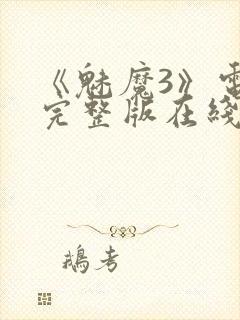 《魅魔3》電
完整版在綫
鵝考